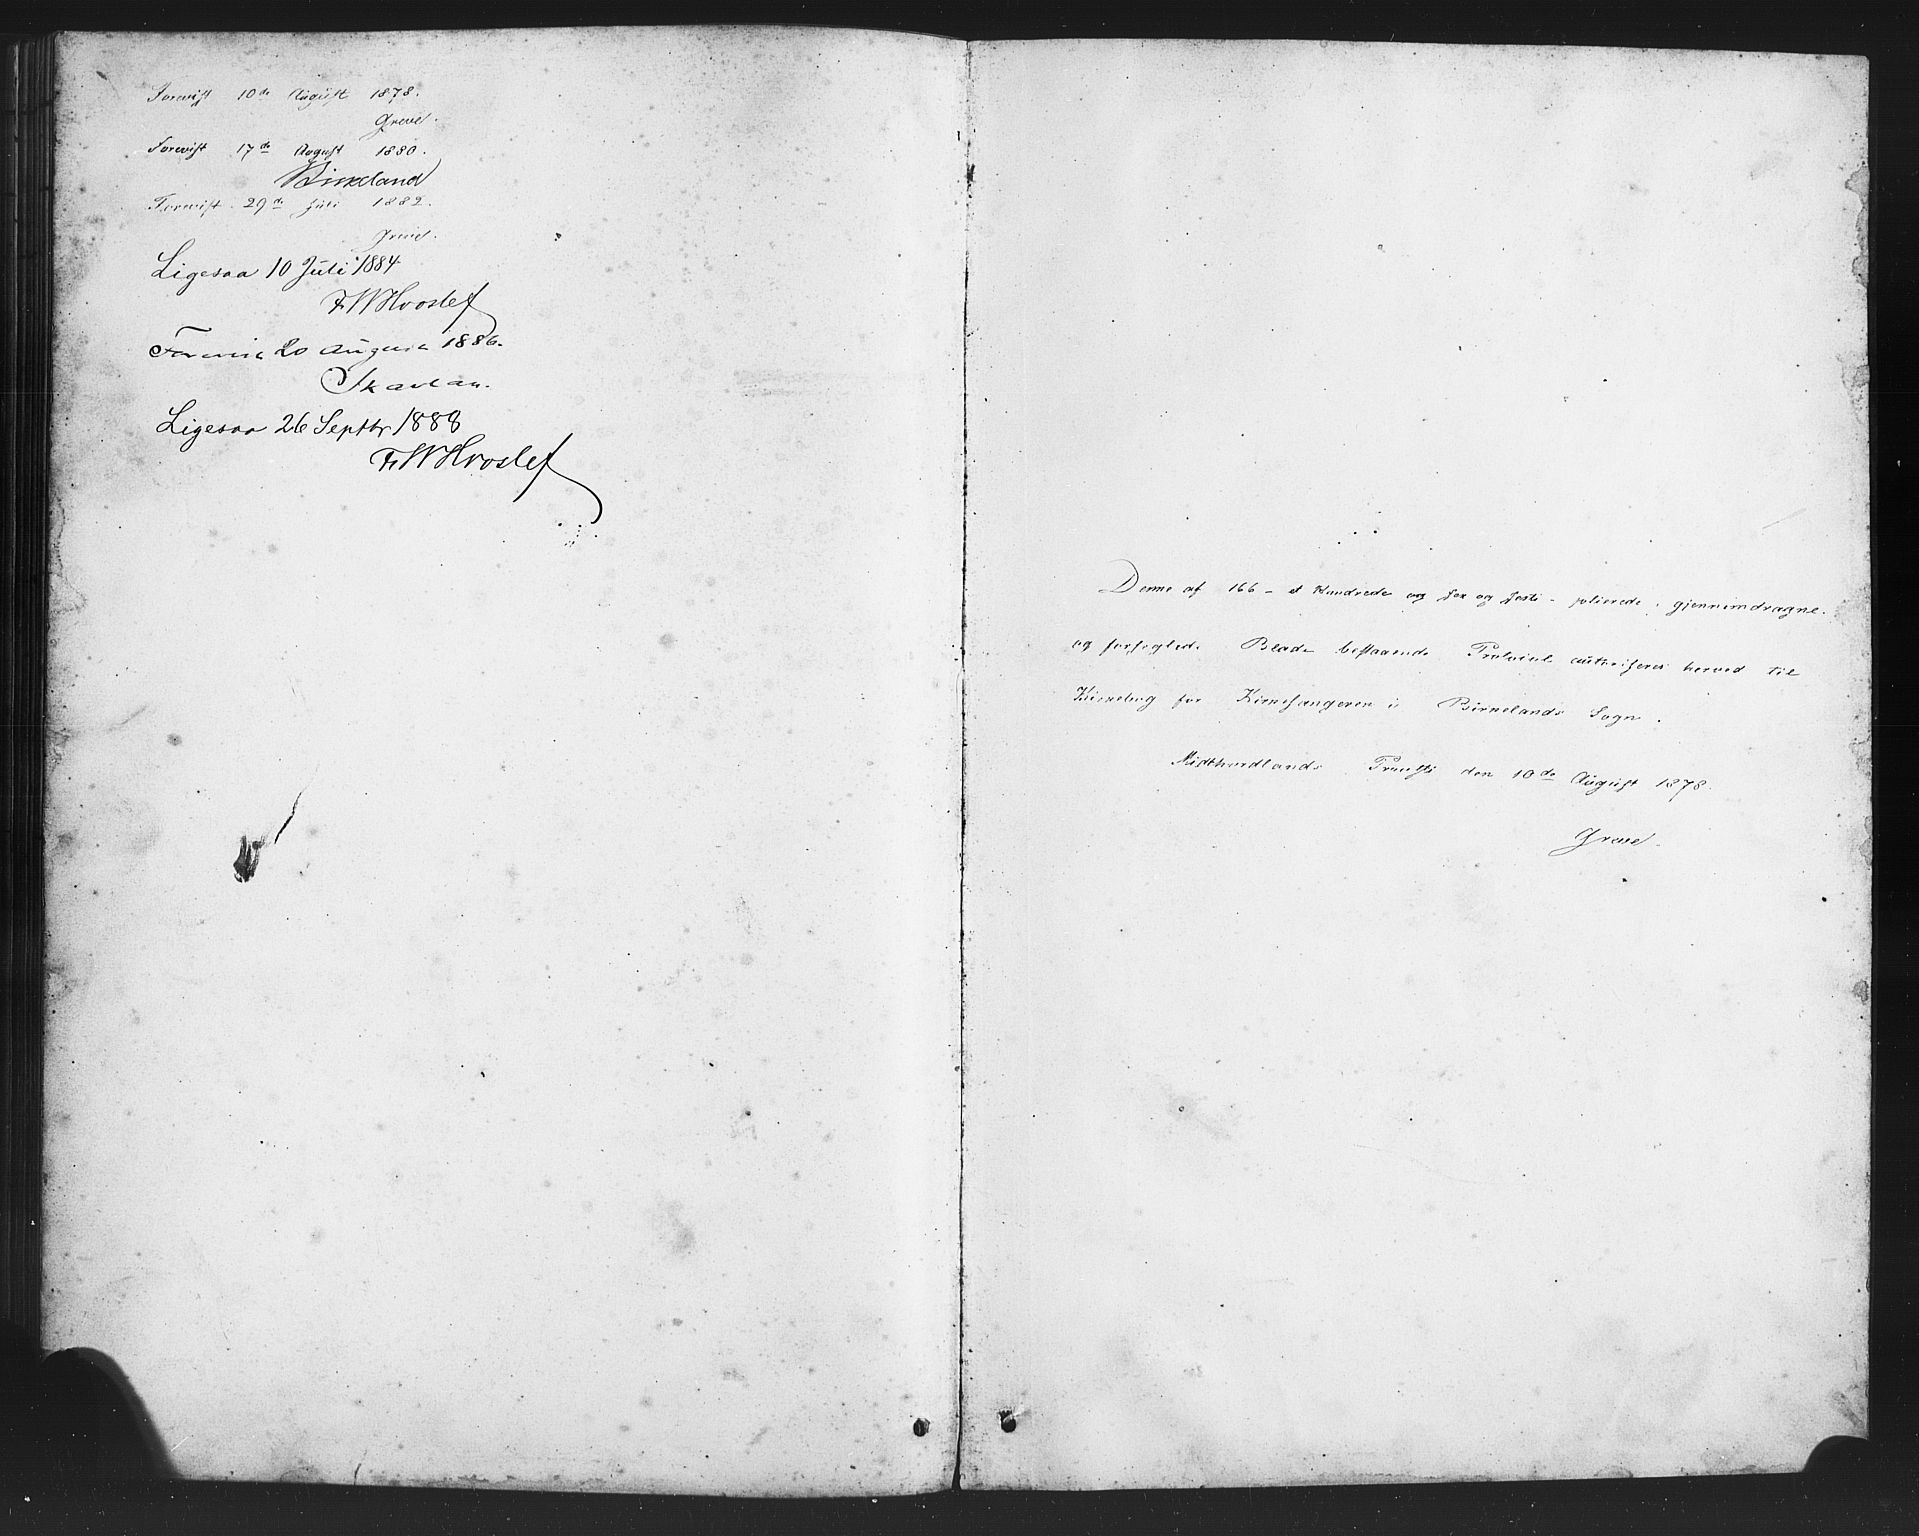 Forevist 10de August 1878.
Greve.
Forevist 17de August 1880.
Birkeland
Forevist 29de Juli 1882.
Greve.
Ligesaa 10 Juli 1884
F.W Hvoslef
Forevist 20 August 1886.
Skavlan.
Ligesaa 26 Septbr 1888
F.W Hvoslef
Denne af 166 - et Hundrede og sex og sexti - folierede, gjennemdragne
og forseglede Blade bestaaende Protocol authoriseres herved til
Kirkebog for Kirkesangeren i Birkelands Sogn.
Midthordlands Provsti den 10de August 1878.
Greve.